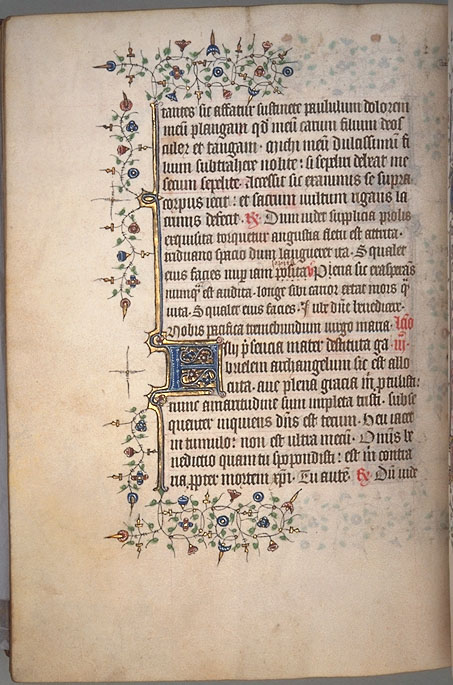 tantes sic affatur sustinete paululum dolorem
meū plangam qd meū carum filium deos
culer et tangam. michi meū dulcissimū fi
lium subtrahere nolite: si sepeliri debeat me
secum sepelite. accessit sic exanimis se supra
corpus iecit: et sacrum vultum rigans la
crimis defecit. R Dum videt supplicia prolis
exquisita torquetur angustia fletu est attrita.
triduano spacio dum langueret ita. Squalet
eius facies nup iam posita v Plena sic
numq est audita. longe sibi carior erat mors q
vita. Squalet eius facies. dūe benedicere.
Nobis pacifica tremebundum virgo maria. lcō
Filii pſencia mater destituta ga iij
brielem archangelum sic est allo
cuta. ave plena gracia in ptulisti:
nunc amaritudine sum impleta tristi. subse
quenter inquiens dn̄s est tecum. Heu iacet
in tumulo: non est ultra mecū. Omnis be
nedictio quam tu spopondisti: est in contra
ria ppter mortem xpi. Tu autē. R Dū vide